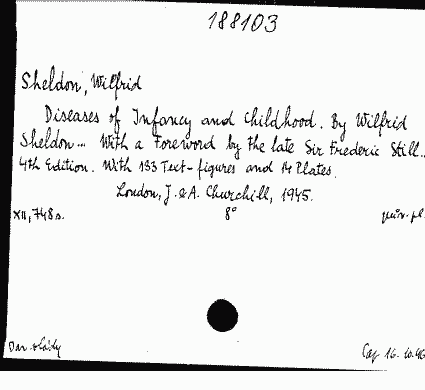 188103
Sheldon, Wilfrid
Diseases of Infancy and Childhood. By Wilfrid
Sheldon... With a Foreword by the late Sir Frederic Still..
4th Edition. With 133 Text-figures and 14 Plates.
London, J. & A. Churchill, 1945.
XII, 748 s. 8°
Dar